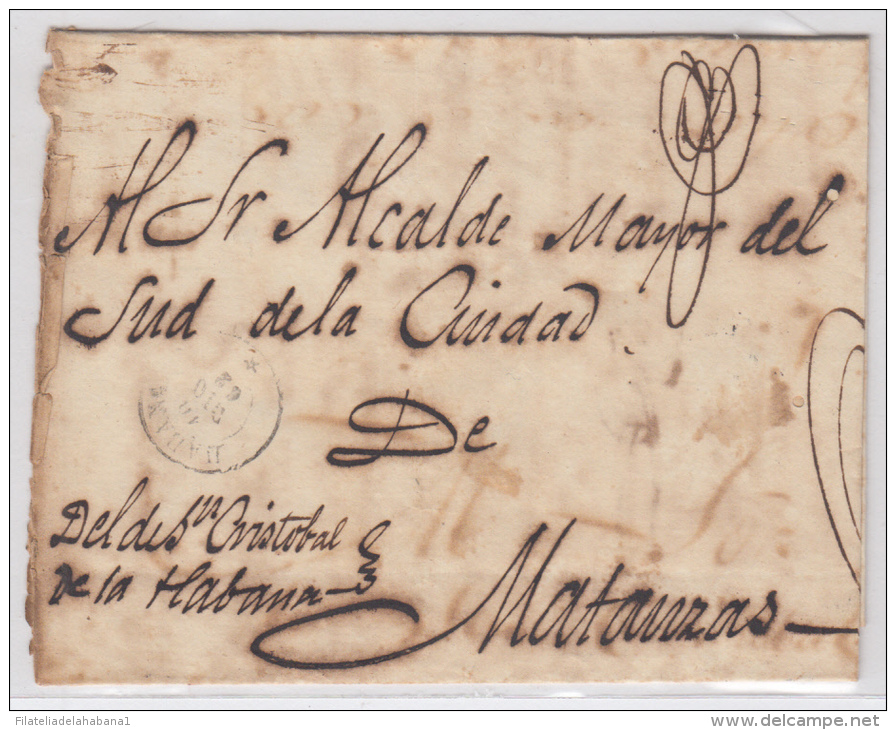 Al Sr Alcalde Mayor del
Sud de la Ciudad
De
HABANA
10
DIC
62
Del de Sn Cristobal
de la Habana
Matanzas
Filateliadelahabana1
delcampe.net